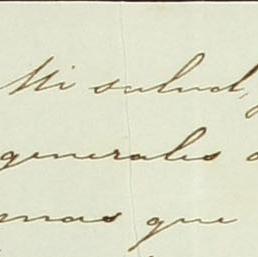 Mi salud,
generales
mas que